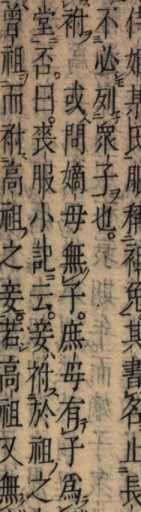 婦某氏服稱袒免其書名止長
不必列衆子也。
祔或問嫡母無子。庶母有子爲
堂否。曰。喪服小記云。妾祔於祖之
曾祖而祔高祖之妾。若高祖又無